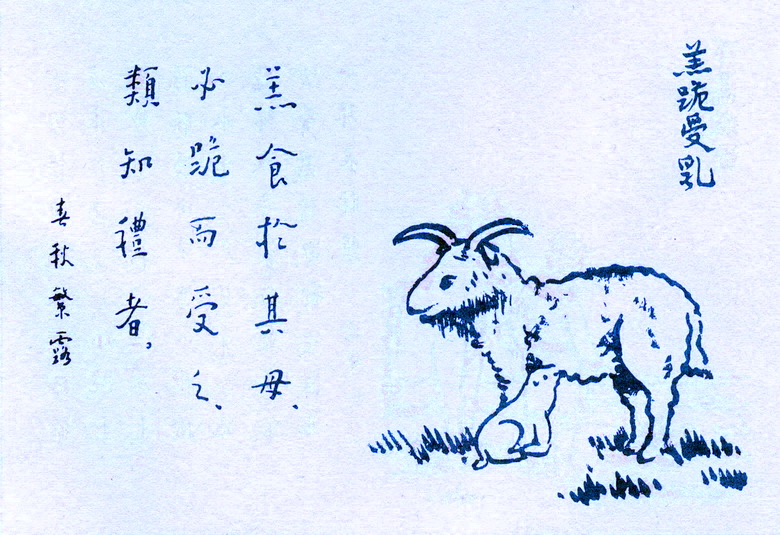 羔跪受乳
羔食於其母、
必跪而受之、
類知禮者、
春秋繁露